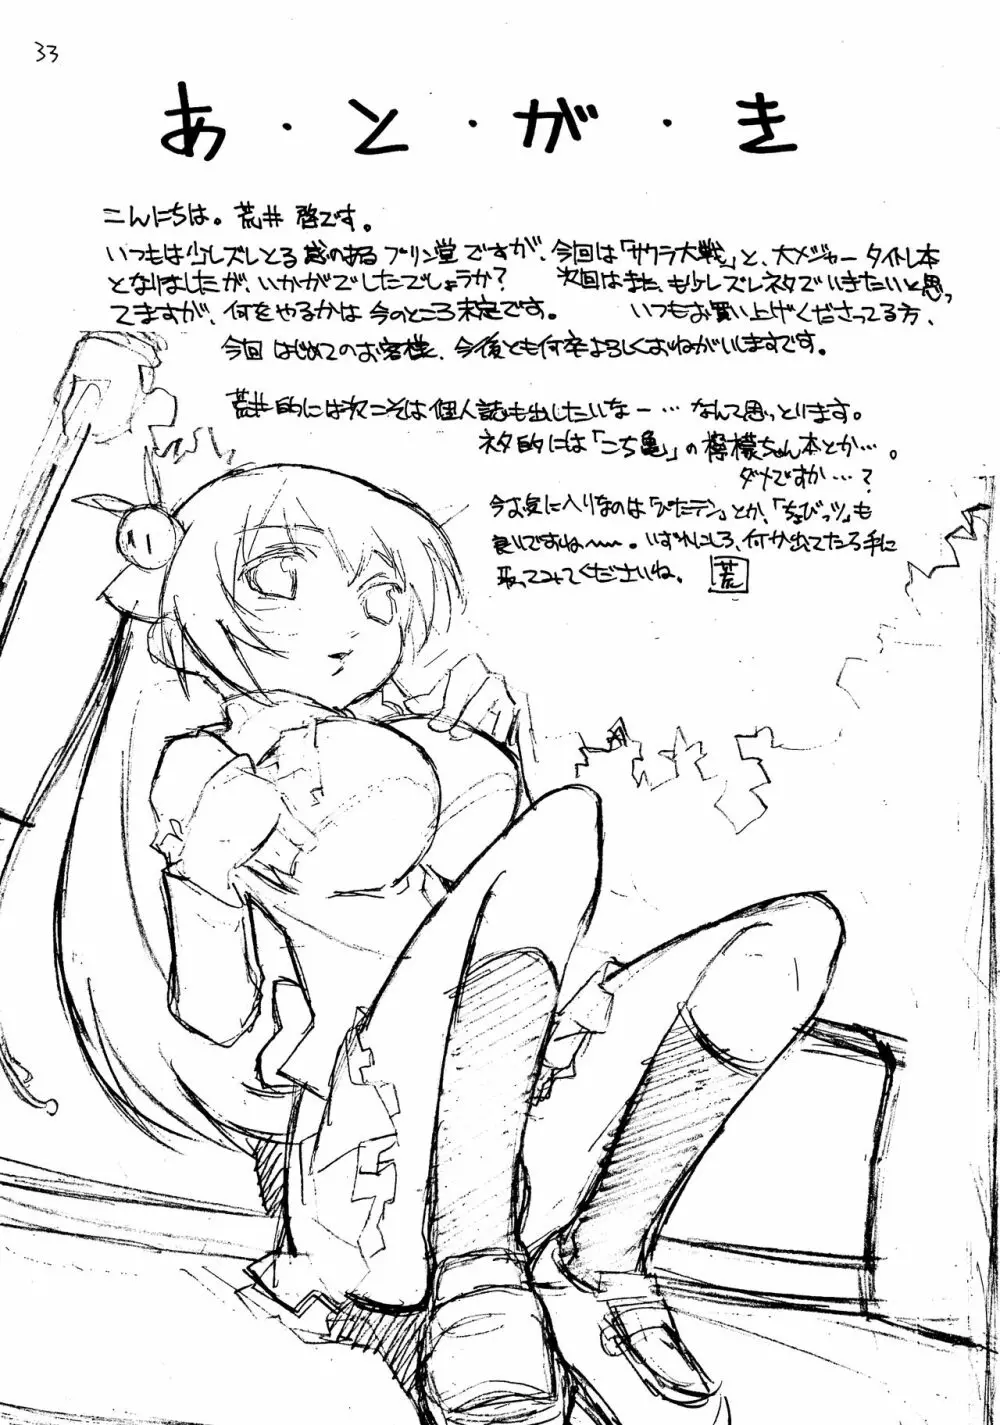 33
あ・と・が・き
こんにちは。荒井 啓です。
いつもは少しズレとる感のあるプリン堂ですが、今回は「サクラ大戦」と、大メジャータイトル本
となりましたが、いかがでしたでしょうか？ 次回はまた、も少しズレネタでいきたいと思っ
てますが、何をやるかは今のところ未定です。 いつもお買い上げくださってる方、
今回はじめてのお客様、今後とも何卒よろしくおねがいしますです。
荒井的には次こそは個人誌も出したいなー…なんて思っとります。
ネタ的には「こち亀」の檸檬ちゃん本とか…。
ダメですか…？
今お気に入りなのは「ぴたテン」とか、「ちょびっツ」も
良いですね〜〜。いずれにしろ、何か出てたら手に
取ってみてくださいね。 荒